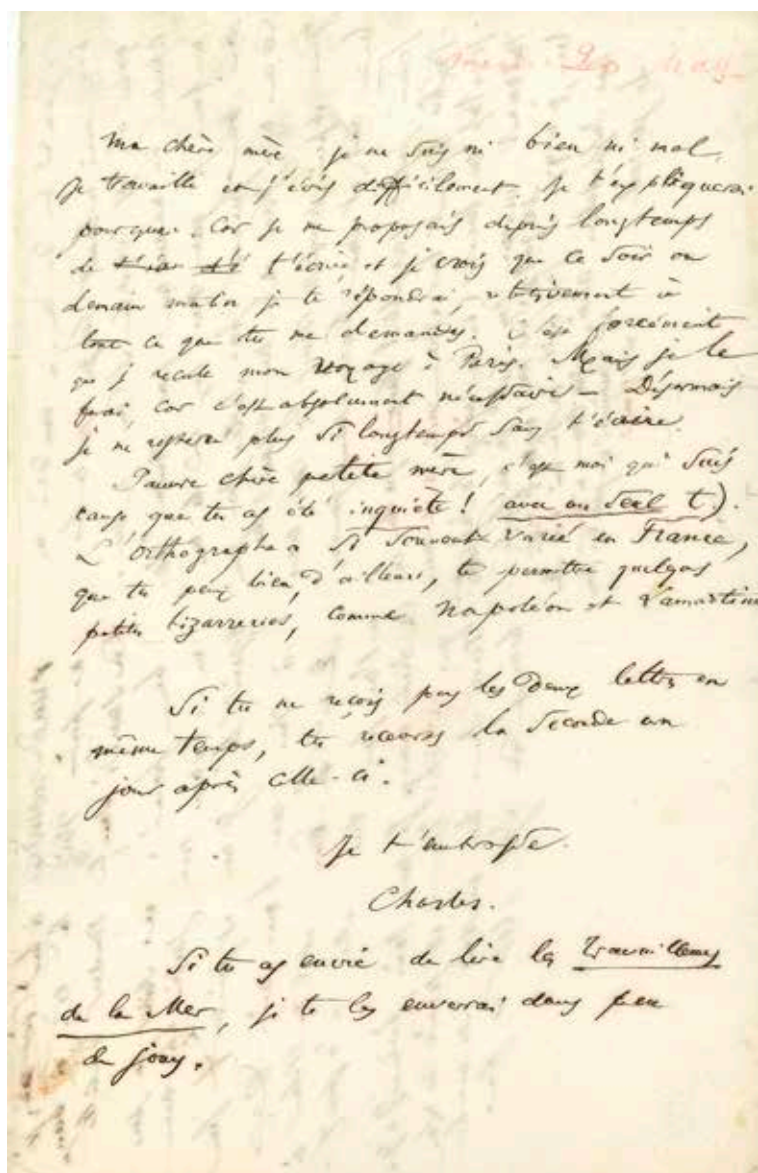 Ma chère mère, je ne suis ni bien ni mal.
Je travaille et j'écris difficilement. Je t'expliquerai
pourquoi. Car je me proposais depuis longtemps
de t'écrire et je crois que ce soir ou
demain matin je te répondrai, relativement à
tout ce que tu me demandes. C'est forcément
que je recule mon voyage à Paris. Mais je le
ferai, car c'est absolument nécessaire – Désormais
je ne resterai plus si longtemps sans t'écrire.
Pauvre chère petite mère, c'est moi qui suis
cause que tu as été inquiète! avec un seul t).
L'orthographe a si souvent varié en France,
que tu peux bien, d'ailleurs, te permettre quelques
petites bizarreries, comme Napoléon et Lamartine
Si tu ne reçois pas les deux lettres en
même temps, tu recevras la seconde un
jour après celle-ci.
Je t'embrasse.
Charles.
Si tu as envie de lire les Travailleurs
de la Mer, je te les enverrai dans peu
de jours.